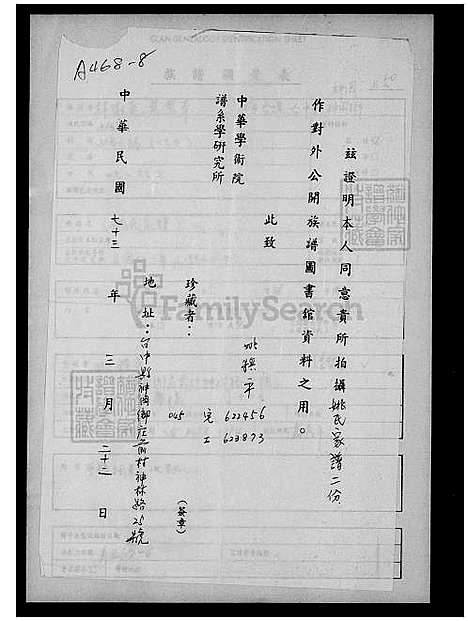 A468-8
茲證明本人同意貴所拍攝姚氏家譜二份
作對外公開族譜圖書館資料之用。
此致
中華學術院
譜系學研究所
珍藏者：姚 平
(簽章)
宅 622456
045 工 623873
地址：台中縣神岡鄉庄前村神林路25號
中華民國 七十三 年 三 月 二十二 日
FamilySearch
CLAN GENEALOGY IDENTIFICATION SHEET